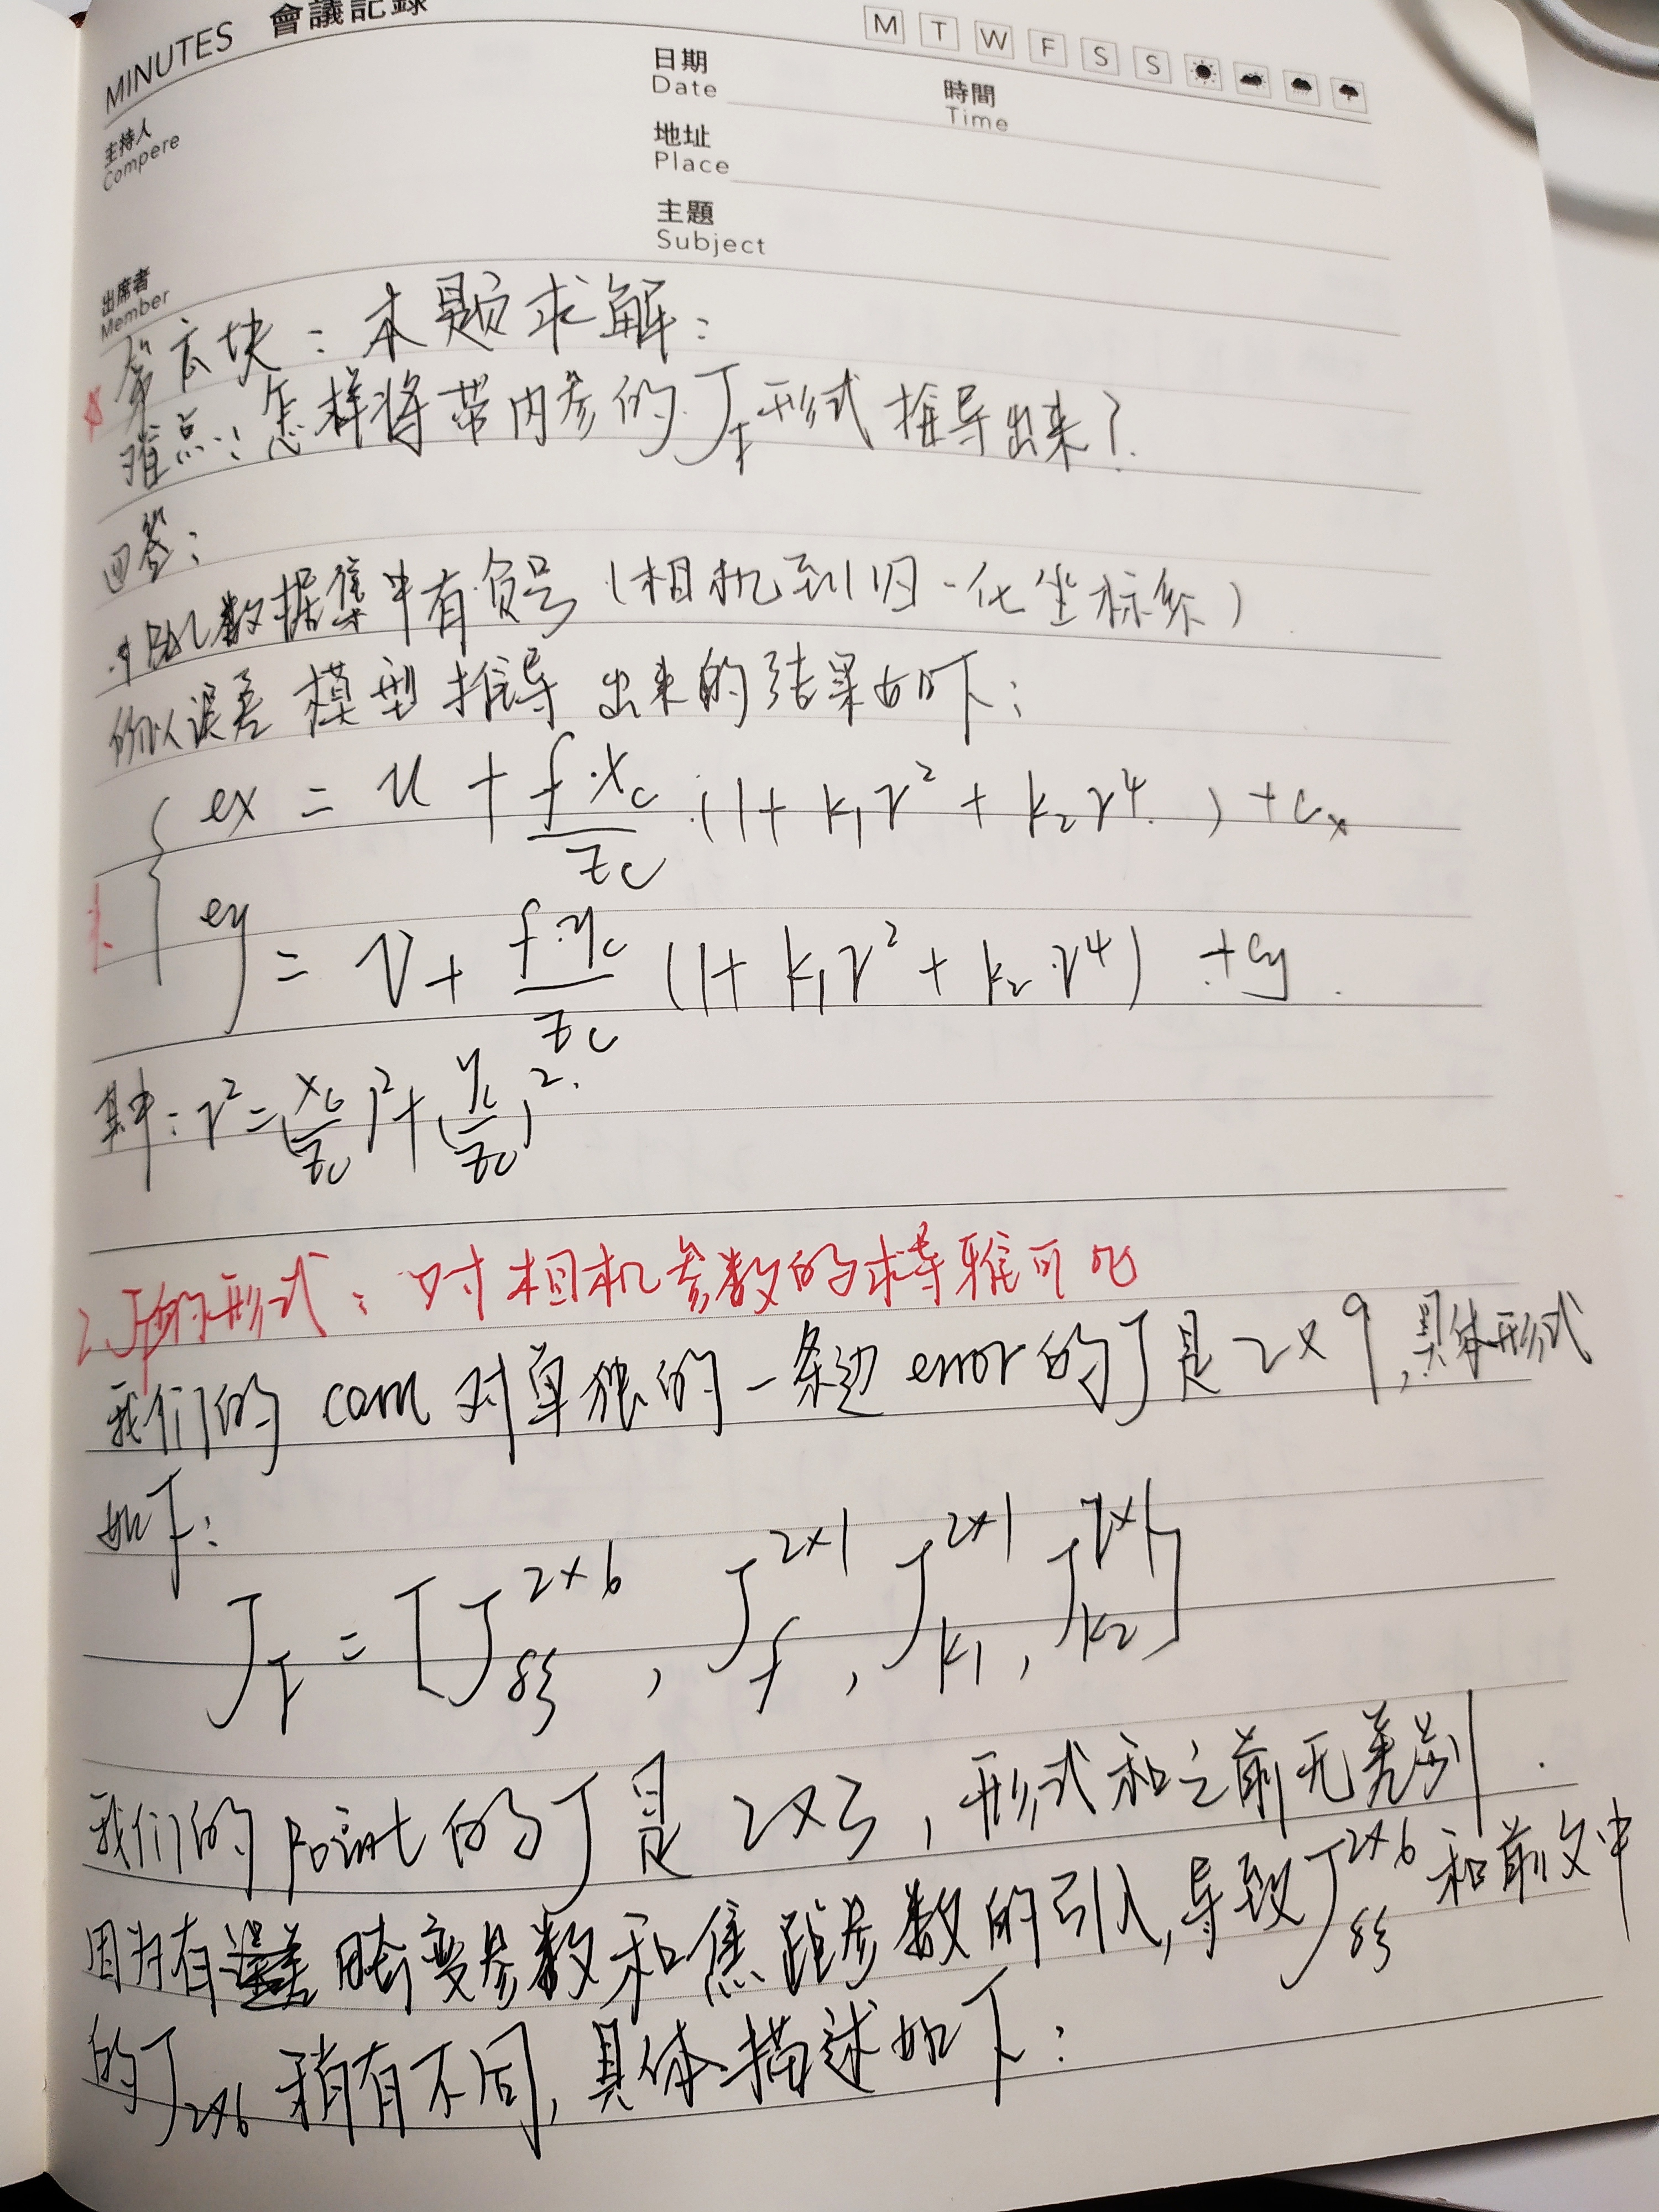 MINUTES 會議記錄
日期
Date
時間
Time
M T W F S S
主持人
Compere
地址
Place
出席者
Member
主題
Subject
第六块：本题求解：
难点：怎样将带内参的J，形式推导出来？
回答：
1. 因数据集中有负号（相机系到归一化坐标系）
所以误差模型推导出来的结果如下：
ex = u + f·xc/zc · (1 + k1r² + k2r⁴) + cx
ey = v + f·yc/zc (1 + k1r² + k2·r⁴) + cy
其中：r² = (xc/zc)² + (yc/zc)².
2. J的形式：对相机参数的求导雅可比
我们的 cam 对单独的一条边error的J是 2×9，具体形式
如下：
J₁ = [J^{2×6}_{δξ}, J^{2×1}_{f}, J^{2×1}_{k1}, J^{2×1}_{k2}]
我们的point的J是2×3，形式和之前无差别.
因为有畸变参数和焦距参数的引入，导致J^{2×6}_{δξ}和前文中
的J^{2×6}稍有不同，具体描述如下：